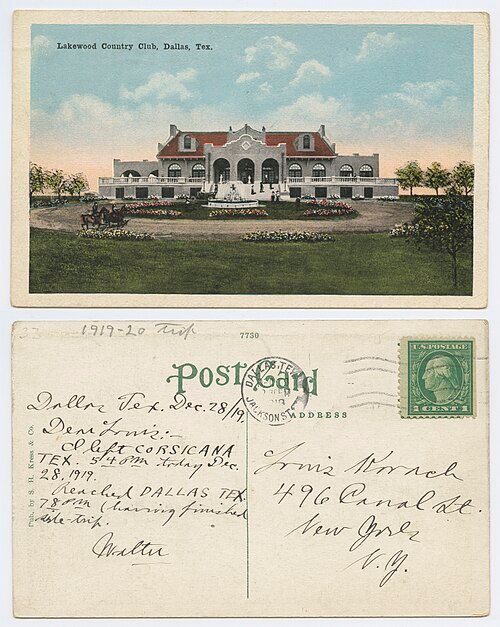 Lakewood Country Club, Dallas, Tex.
1919-20 trip
7730
Post Card
ADDRESS
U.S. POSTAGE
1 CENT 1
DALLAS, TEX.
JACKSON ST.
Pub. by S. H. Kress & Co.
Dallas Tex. Dec. 28/19.
Dear Louis:-
I left CORSICANA
TEX. 5 PM today Dec.
28, 1919.
Reached DALLAS TEX.
PM (having finished
trip.
Walter
Louis
496 Canal St.
New York
N.Y.